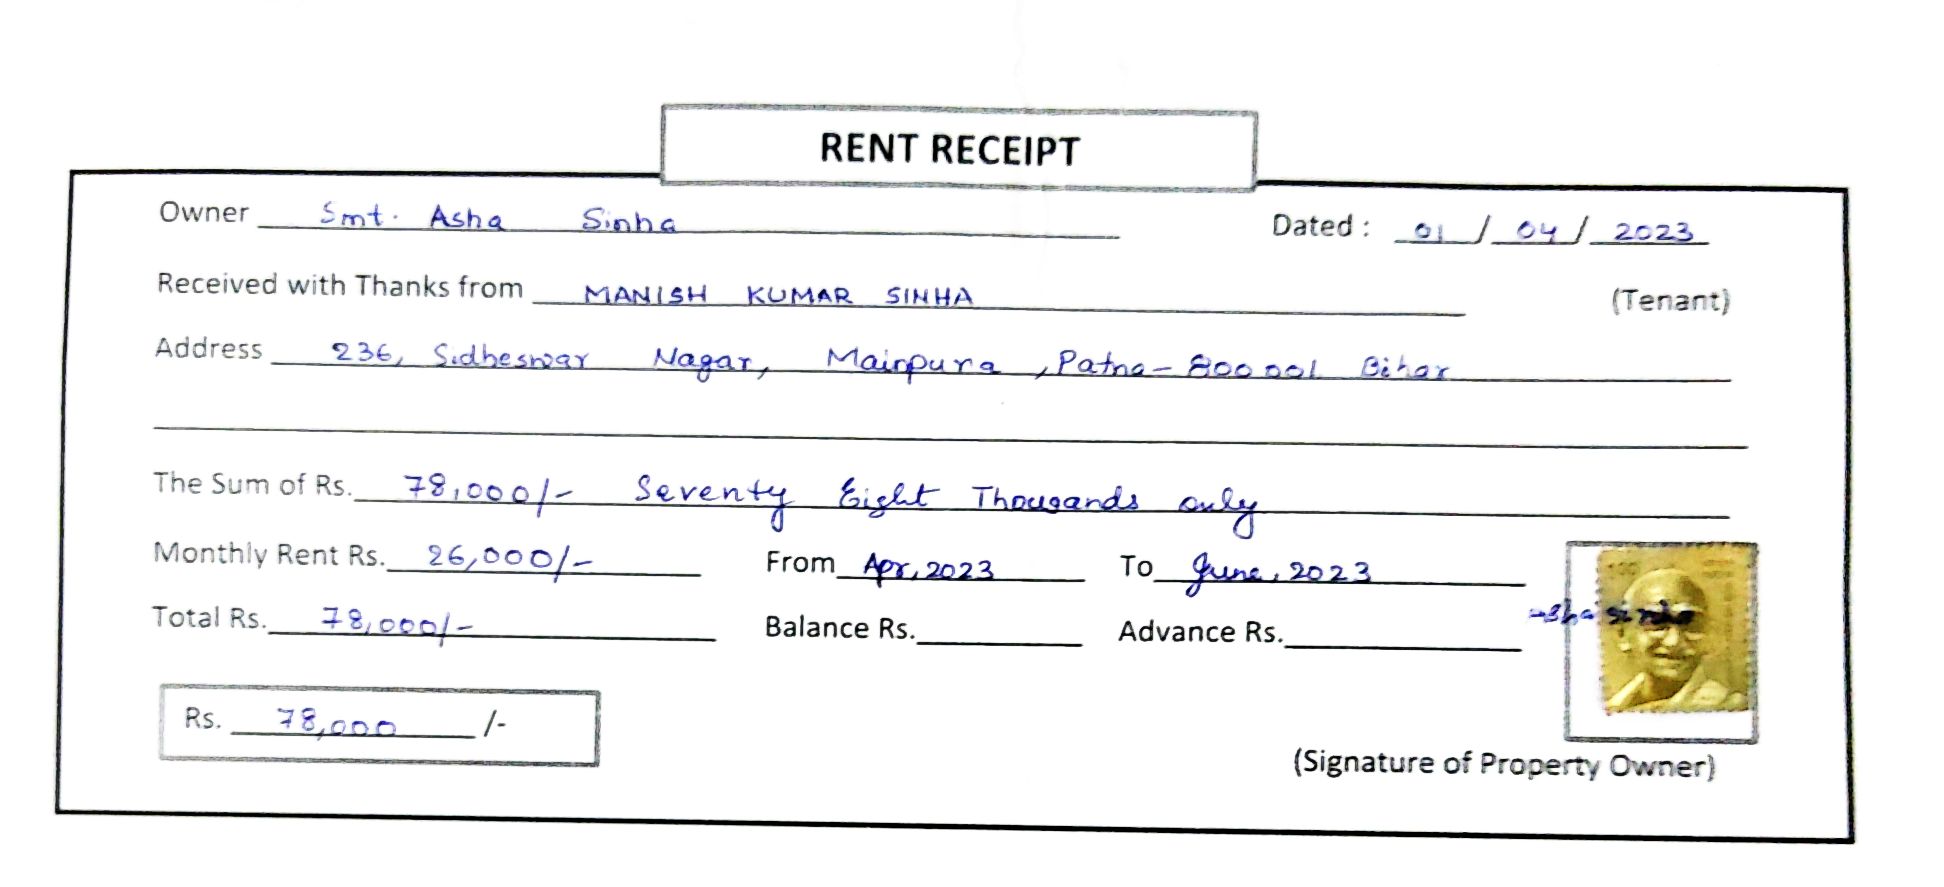 RENT RECEIPT
Owner Smt. Asha Sinha Dated : 01 / 04 / 2023
Received with Thanks from MANISH KUMAR SINHA (Tenant)
Address 236, Sidheswar Nagar, Mainpura, Patna - 800001 Bihar
The Sum of Rs. 78,000/- Seventy Eight Thousands only
Monthly Rent Rs. 26,000/- From Apr, 2023 To June, 2023
Total Rs. 78,000/- Balance Rs. Advance Rs.
Asha Sinha
Rs. 78,000 /-
(Signature of Property Owner)